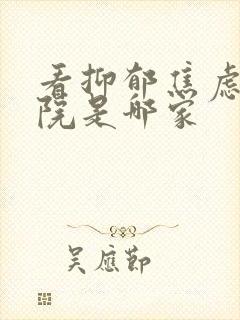 看抑郁焦虑
院是哪家
吴应节